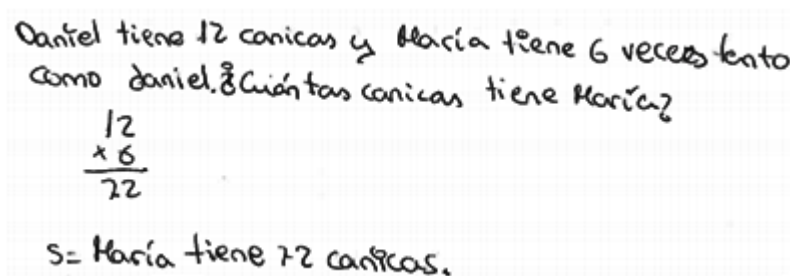 Daniel tiene 12 canicas y María tiene 6 veces tanto
como daniel. ¿Cuántas canicas tiene María?
12
x 6
72
S= María tiene 72 canicas.